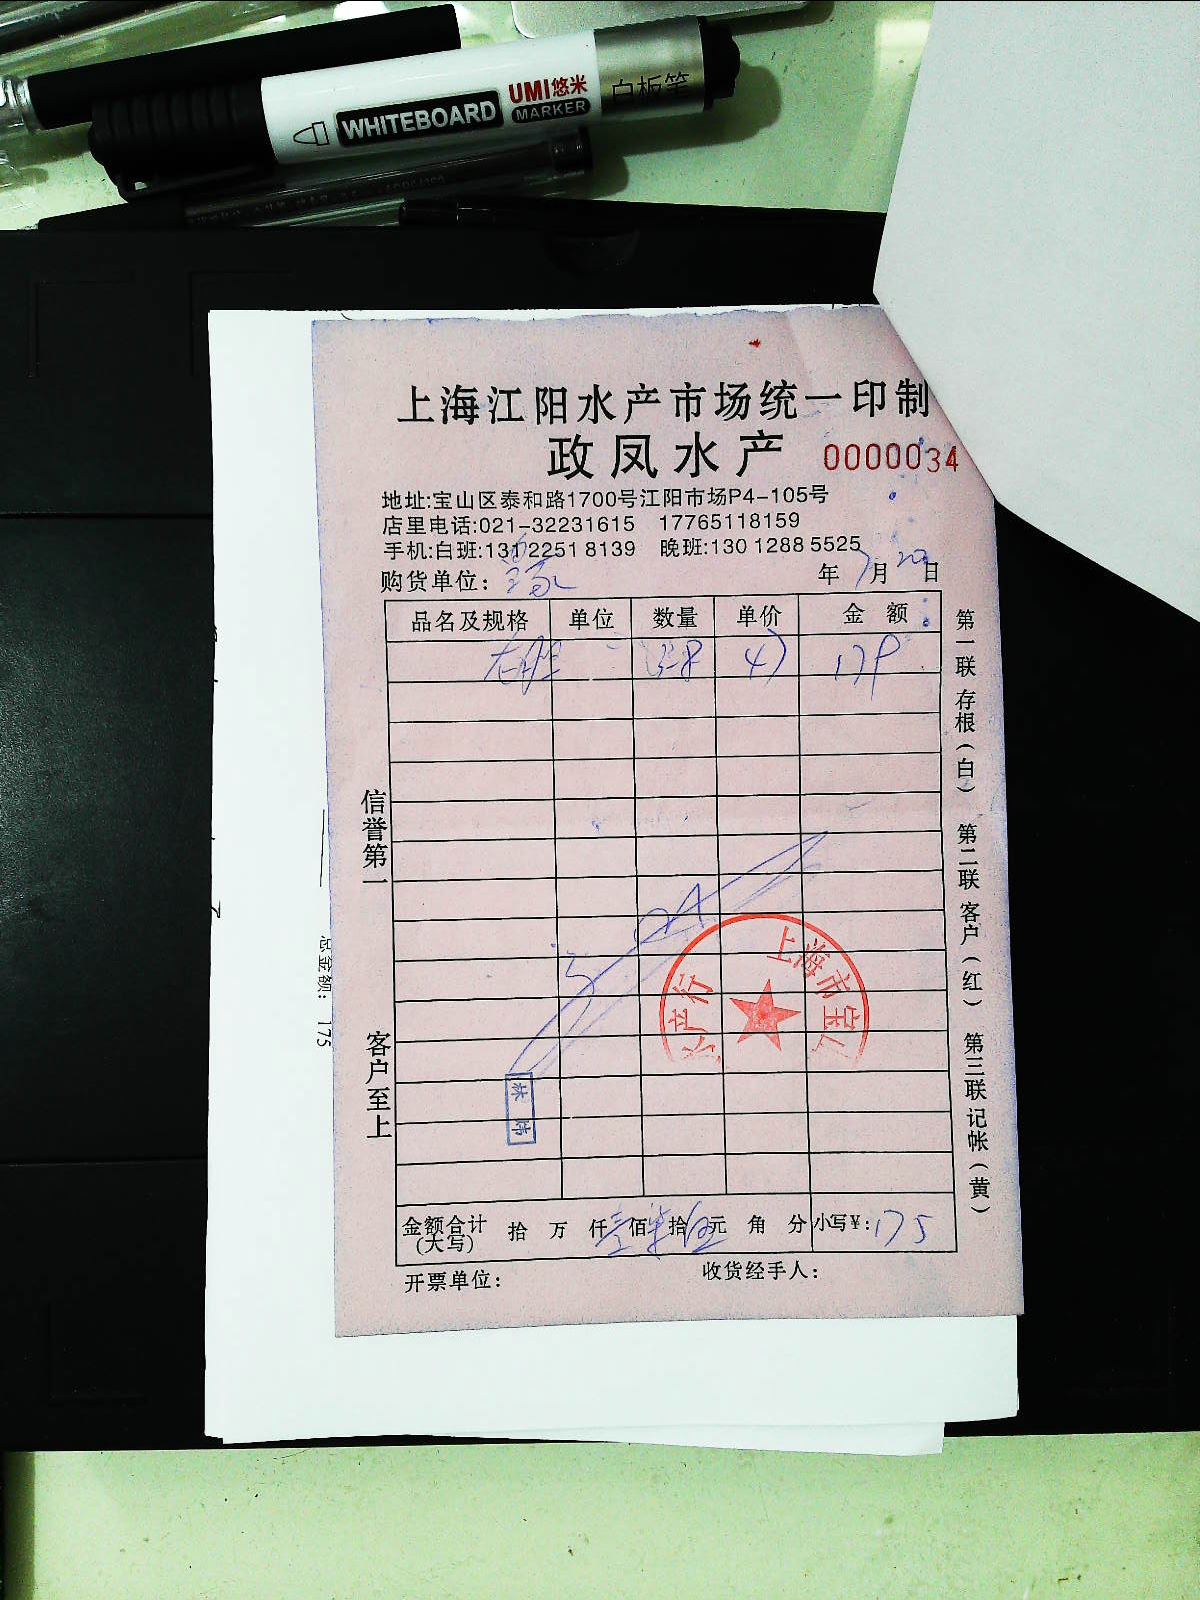 UMI悠米
WHITEBOARD MARKER 白板笔
上海江阳水产市场统一印制
政凤水产 0000034
地址:宝山区泰和路1700号江阳市场P4-105号
店里电话:021-32231615 17765118159
手机:白班:131 2251 8139 晚班:130 1288 5525
购货单位: 年7月20日
品名及规格 单位 数量 单价 金额
47
信誉第一
客户至上
第一联 存根(白) 第二联 客户(红) 第三联 记帐(黄)
总金额: 175
上海市宝
产行
金额合计(大写) 拾万仟壹佰柒拾伍元角分 小写¥:175
开票单位: 收货经手人: